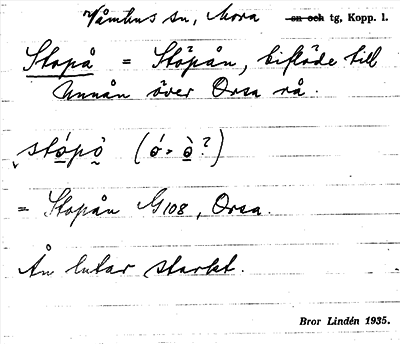 Våmhus sn, Mora sn och tg, Kopp. l.
Stopå = Stöpån, biflöde till
Unnån över Orsa rå.
stópò̱ (ó = ò̱ ?)
= Stopån G108, Orsa.
Ån lutar starkt.
Bror Lindén 1935.